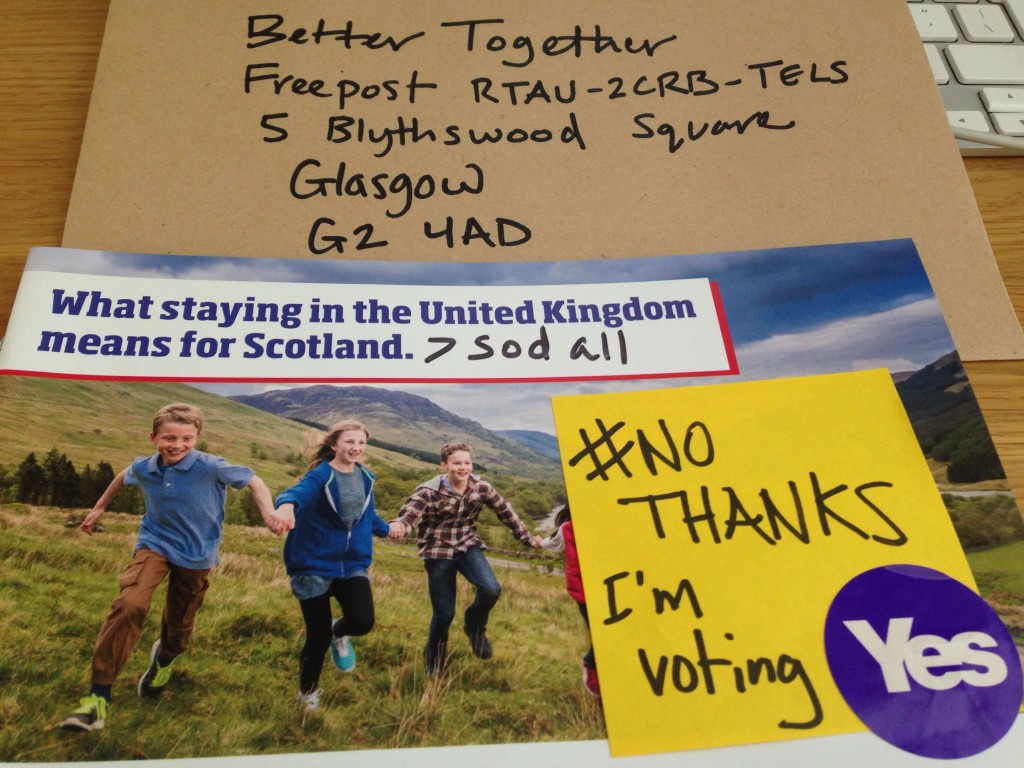 Better Together
Freepost RTAU-2CRB-TELS
5 Blythswood Square
Glasgow
G2 4AD
What staying in the United Kingdom
means for Scotland. > sod all
#NO
THANKS
I'm
voting
Yes